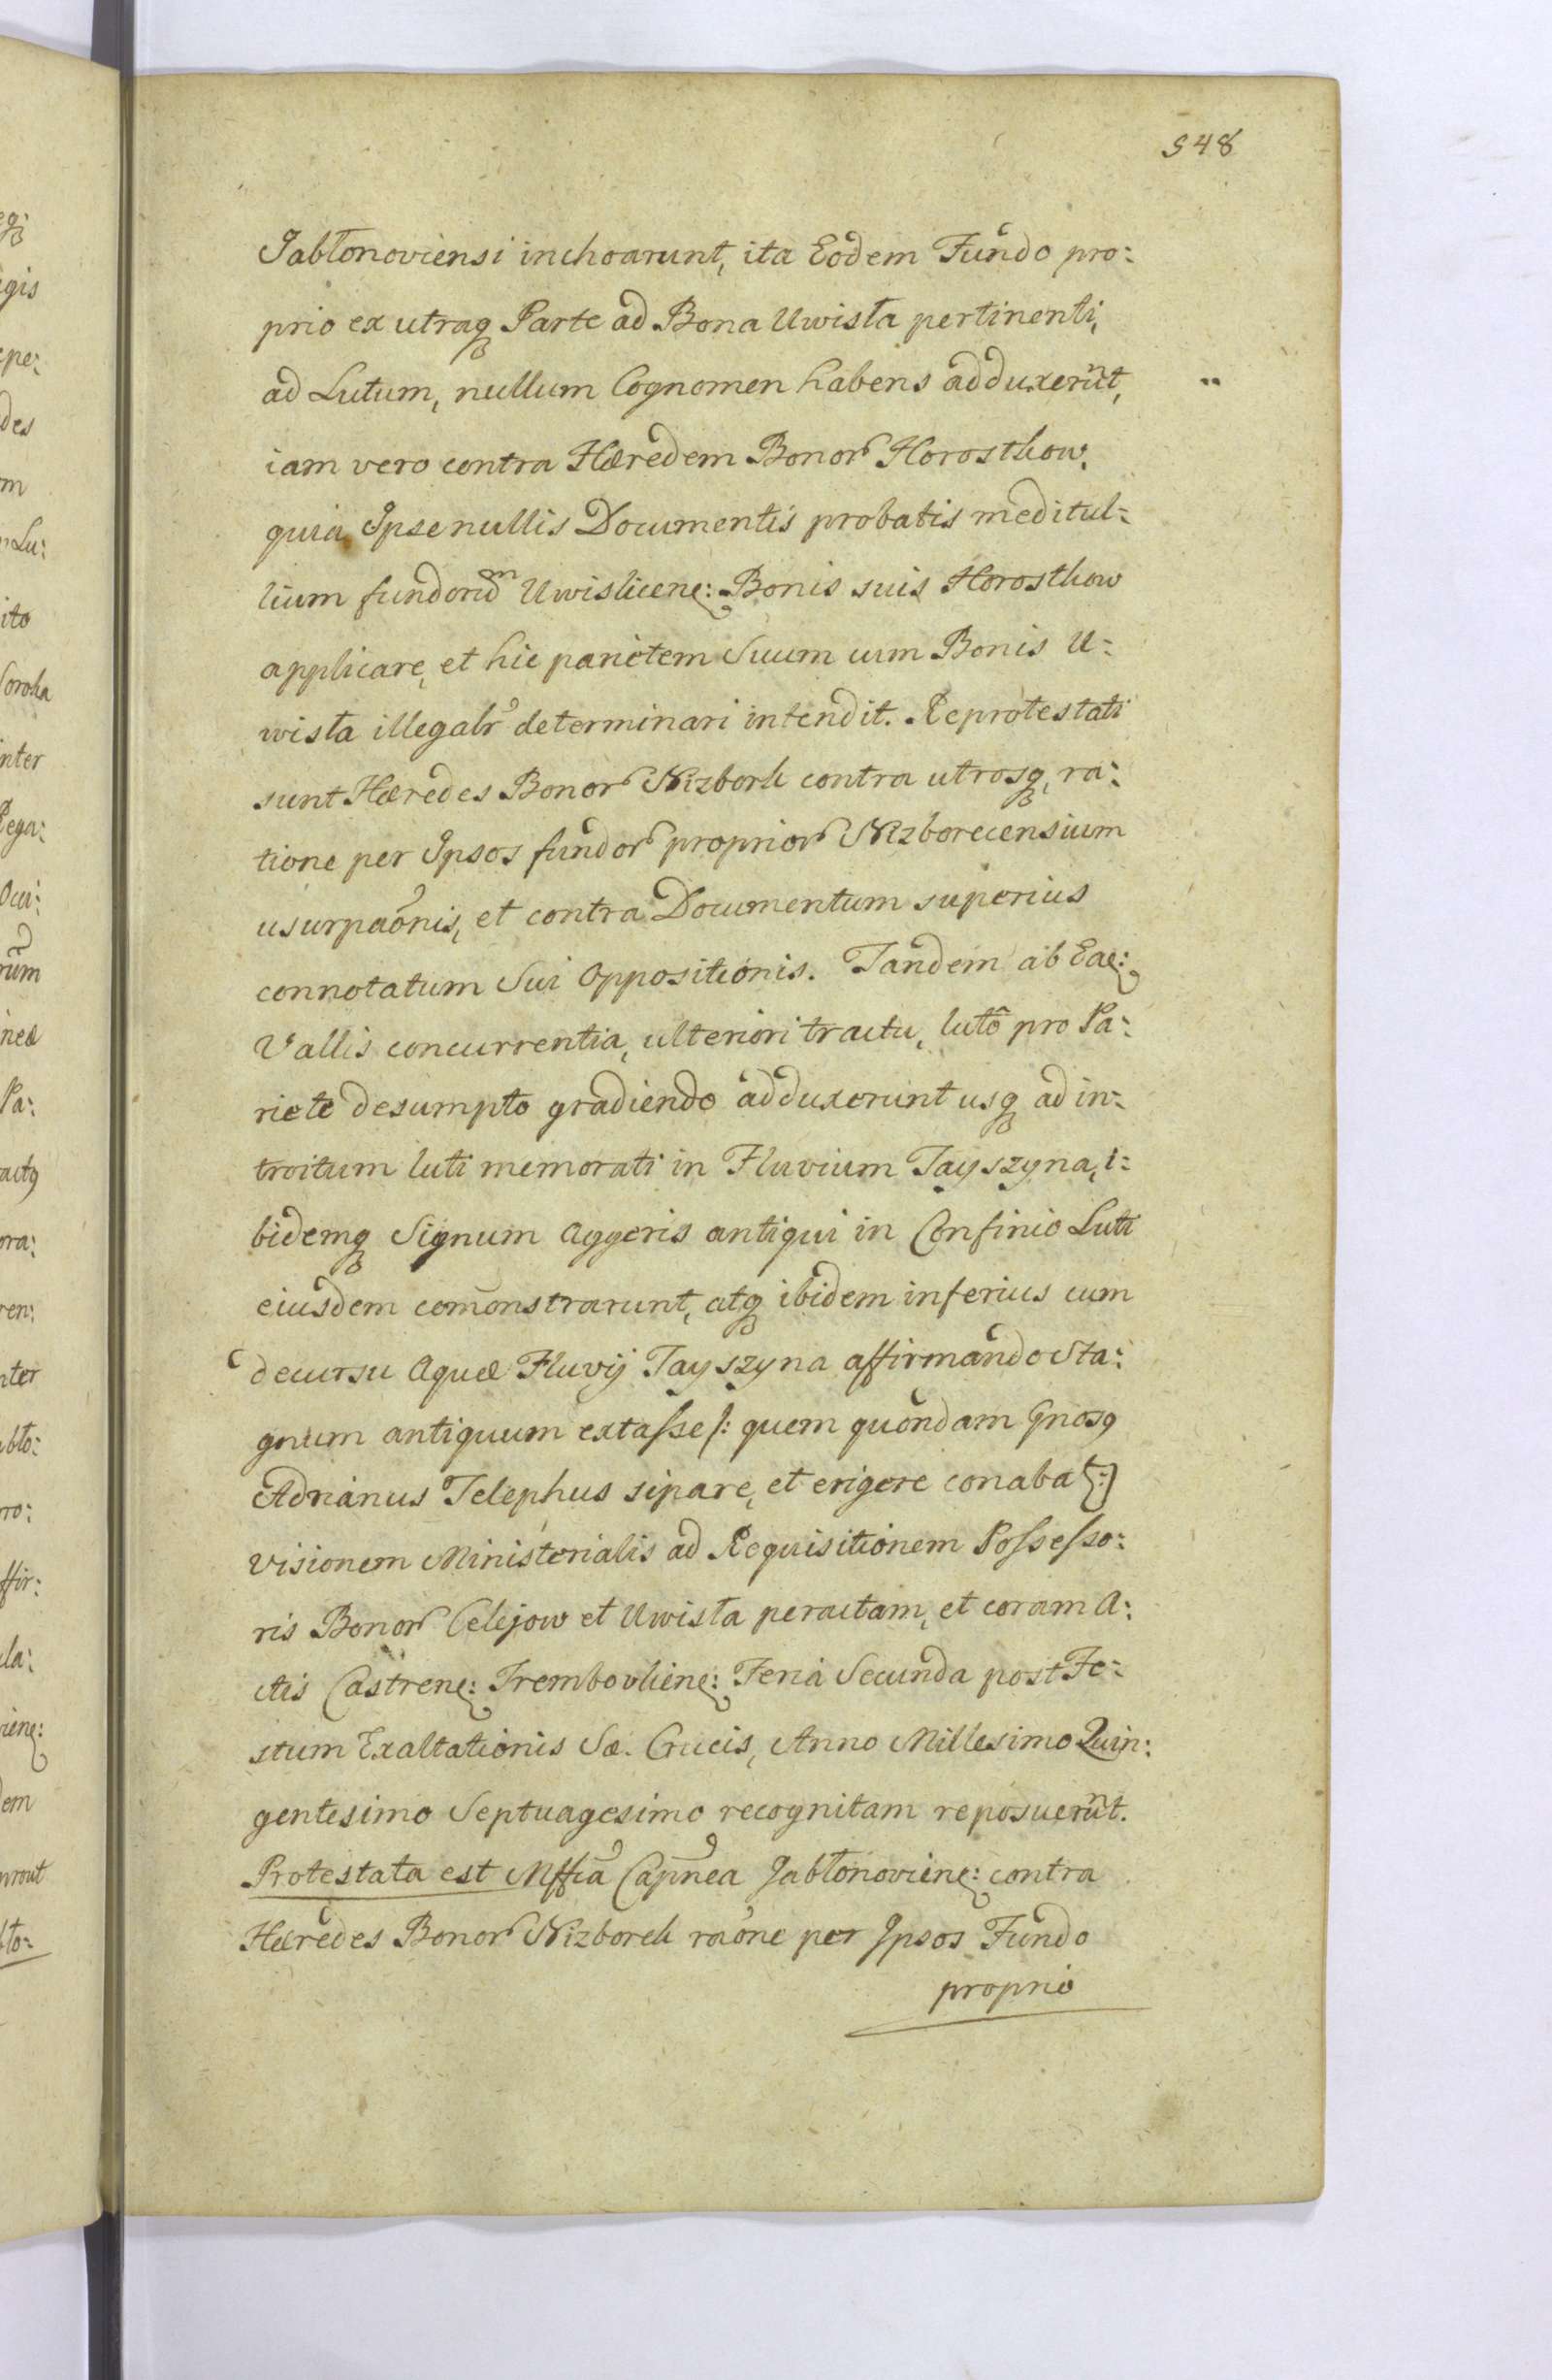 548
Jabłonoviensi inchoarunt, ita Eodem Fundo pro:
prio ex utraq, Parte ad Bona Uwisła pertinenti,
ad Lutum, nullum Cognomen habens adduxerut,
iam vero contra Hæredem Bonor Horosthow,
quia Ipse nullis Documentis probatis meditul:
lium fundorum Uwislicen: Bonis suis Horosthow
applicare, et hic parietem Suum cum Bonis U:
wisła illegalr determinari intendit. Reprotestati
sunt Hæredes Bonor Nizbork contra utrosq, ra:
tione per Ipsos fundor proprior Nizborecensium
usurpaonis, et contra Documentum superius
connotatum Sui Oppositionis. Tandem ab Ea:
Vallis concurrentia, ulteriori tractu, luto pro Pa:
riete desumpto gradiendo adduxerunt usq, ad in:
troitum luti memorati in Fluvium Tayszyna, i:
bidemq, Signum Aggeris antiqui in Confinio Luti
eiusdem comonstrarunt, atq, ibidem inferius cum
decursu Aquæ Fluvij Tayszyna affirmando Sta:
gnum antiquum extasse /: quem quondam Gnosq
Adrianus Telephus sipare, et erigere conabat :/
visionem Ministerialis ad Requisitionem Possesso:
ris Bonor Celejow et Uwisła peractam, et coram A:
ctis Castren: Trembovlien: Feria Secunda post Fe:
stum Exaltationis Sæ. Crucis, Anno Millesimo Quin:
gentesimo Septuagesimo recognitam reposuerut.
Protestata est Mffca Capnea Jabłonovien: contra
Hæredes Bonor Nizborek raone per Ipsos Fundo
proprio